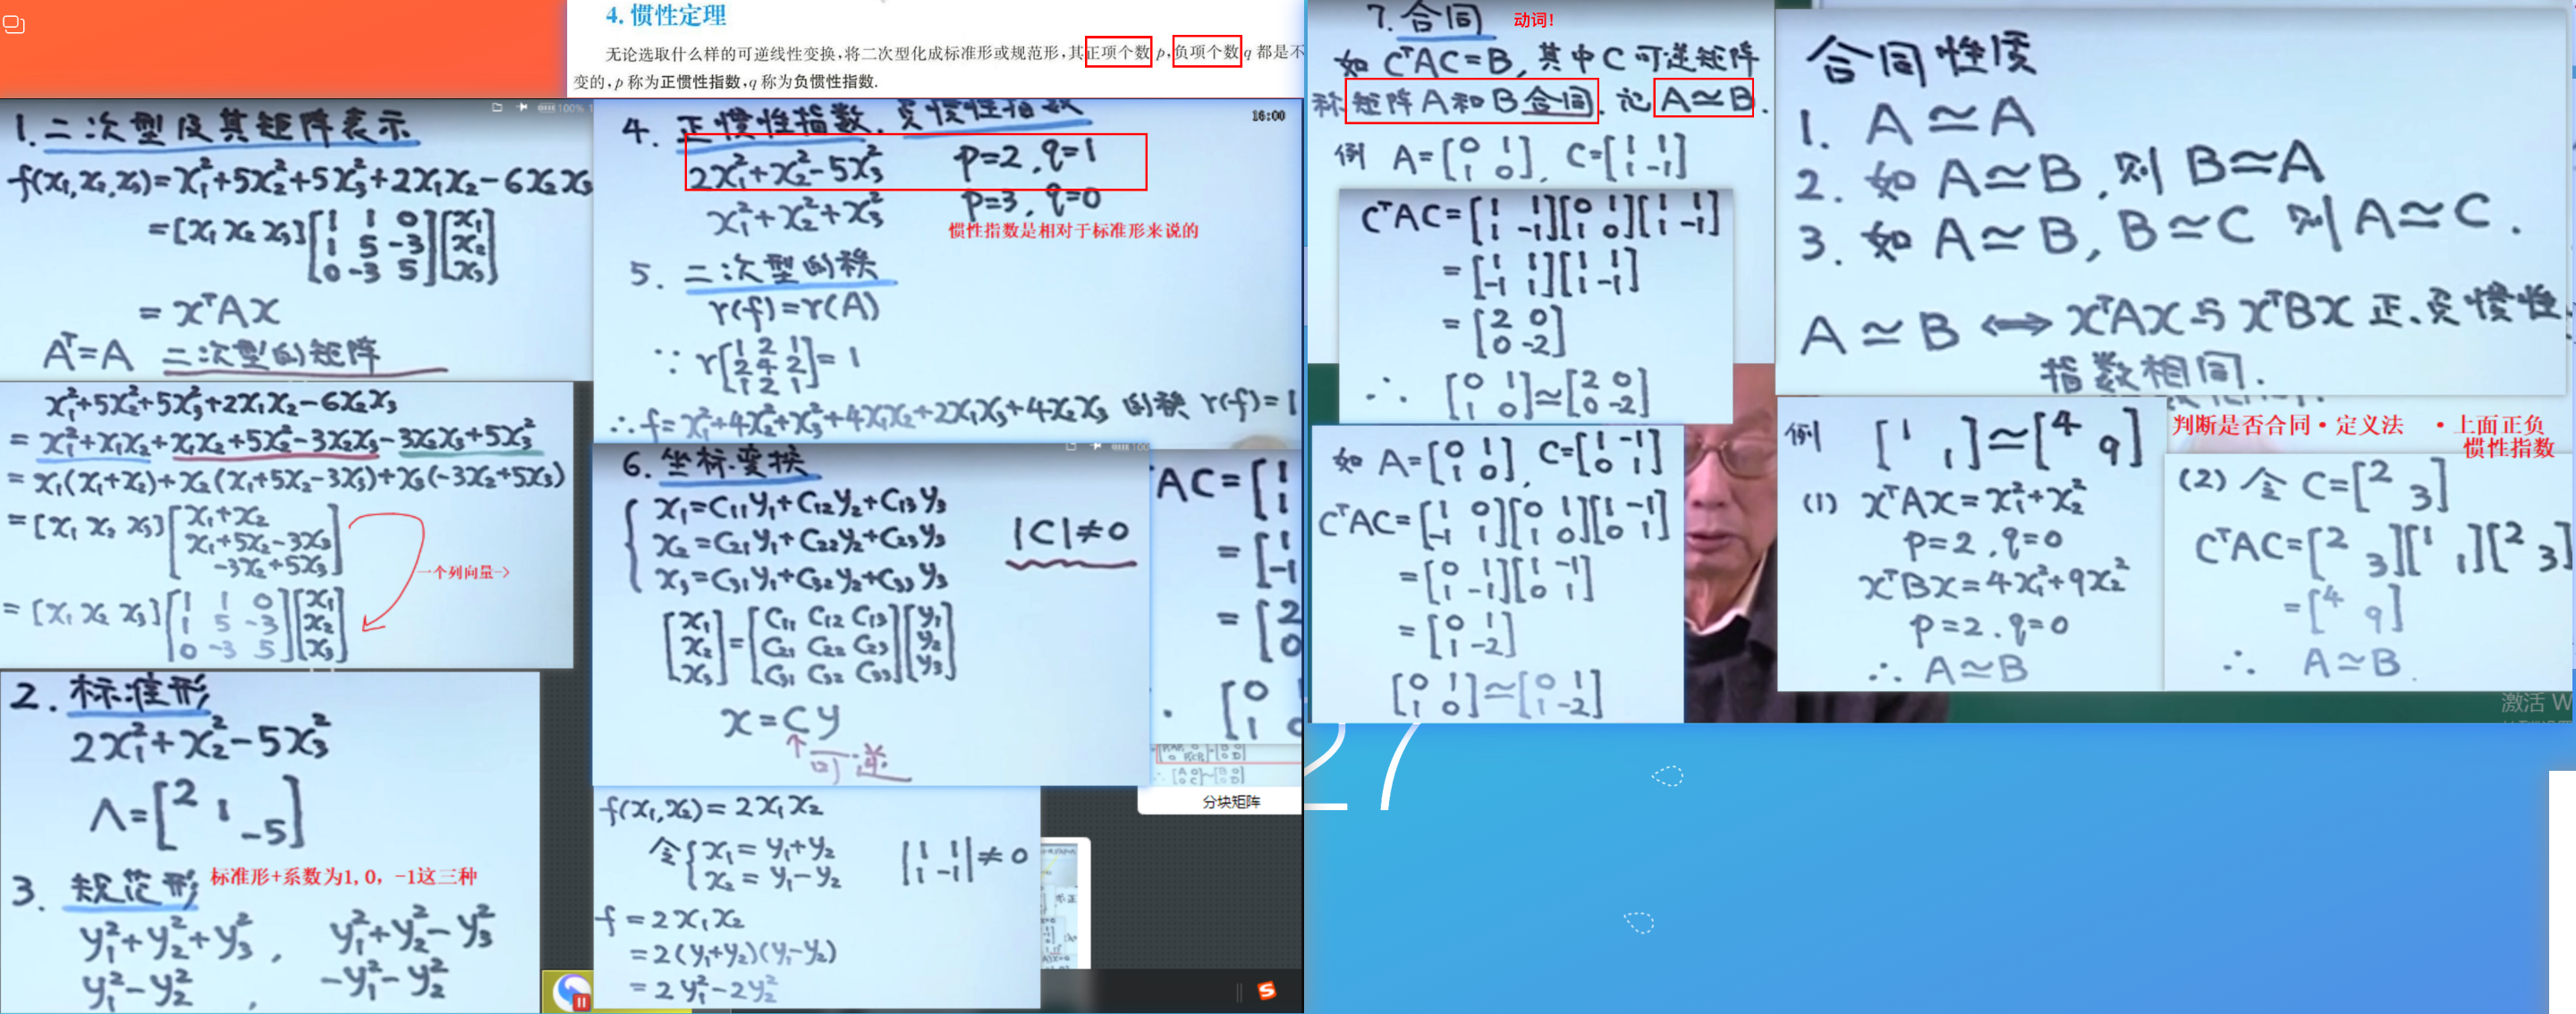 4. 惯性定理
无论选取什么样的可逆线性变换,将二次型化成标准形或规范形,其正项个数 p,负项个数 q 都是不
变的, p 称为正惯性指数, q 称为负惯性指数.
100%
1. 二次型及其矩阵表示
f(x₁,x₂,x₃)=x₁²+5x₂²+5x₃²+2x₁x₂-6x₂x₃
=[x₁ x₂ x₃][1 1 0; 1 5 -3; 0 -3 5][x₁; x₂; x₃]
= xᵀAx
Aᵀ=A 二次型的矩阵
x₁²+5x₂²+5x₃²+2x₁x₂-6x₂x₃
= x₁²+x₁x₂+x₁x₂+5x₂²-3x₂x₃-3x₂x₃+5x₃²
= x₁(x₁+x₂)+x₂(x₁+5x₂-3x₃)+x₃(-3x₂+5x₃)
=[x₁ x₂ x₃][x₁+x₂; x₁+5x₂-3x₃; -3x₂+5x₃]
一个列向量->
= [x₁ x₂ x₃][1 1 0; 1 5 -3; 0 -3 5][x₁; x₂; x₃]
2. 标准形
2x₁²+x₂²-5x₃²
Λ=[2 1 -5]
3. 规范形 标准形+系数为1,0,-1这三种
y₁²+y₂²+y₃² , y₁²+y₂²-y₃²
y₁²-y₂² , -y₁²-y₂²
16:00
4. 正惯性指数、负惯性指数
2x₁²+x₂²-5x₃² p=2, q=1
x₁²+x₂²+x₃² p=3, q=0
惯性指数是相对于标准形来说的
5. 二次型的秩
r(f)=r(A)
∵ r[1 2 1; 2 4 2; 1 2 1]=1
∴ f=x₁²+4x₂²+x₃²+4x₁x₂+2x₁x₃+4x₂x₃ 的秩 r(f)=1
6. 坐标变换
x₁=C₁₁y₁+C₁₂y₂+C₁₃y₃
x₂=C₂₁y₁+C₂₂y₂+C₂₃y₃ |C|≠0
x₃=C₃₁y₁+C₃₂y₂+C₃₃y₃
[x₁; x₂; x₃]=[C₁₁ C₁₂ C₁₃; C₂₁ C₂₂ C₂₃; C₃₁ C₃₂ C₃₃][y₁; y₂; y₃]
x=Cy
可逆
f(x₁,x₂)=2x₁x₂
令{x₁=y₁+y₂ |1 1; 1 -1|≠0
x₂=y₁-y₂
f=2x₁x₂
=2(y₁+y₂)(y₁-y₂)
=2y₁²-2y₂²
AC=[1
分块矩阵
7. 合同 动词!
如 CᵀAC=B, 其中 C 可逆矩阵
称矩阵 A 和 B 合同. 记 A≃B.
例 A=[0 1; 1 0], C=[1 1; 1 -1]
CᵀAC=[1 1; 1 -1][0 1; 1 0][1 1; 1 -1]
=[1 1; -1 1][1 1; 1 -1]
=[2 0; 0 -2]
∴ [0 1; 1 0]≃[2 0; 0 -2]
如 A=[0 1; 1 0], C=[1 -1; 0 1]
CᵀAC=[1 0; -1 1][0 1; 1 0][1 -1; 0 1]
=[0 1; 1 -1][1 -1; 0 1]
=[0 1; 1 -2]
[0 1; 1 0]≃[0 1; 1 -2]
合同性质
1. A≃A
2. 如 A≃B, 则 B≃A
3. 如 A≃B, B≃C 则 A≃C.
A≃B ⟺ xᵀAx 与 xᵀBx 正、负惯性
指数相同.
判断是否合同·定义法 ·上面正负
惯性指数
例 [1 1]≃[4 9]
(1) xᵀAx=x₁²+x₂²
p=2, q=0
xᵀBx=4x₁²+9x₂²
p=2. q=0
∴ A≃B
(2) 令 C=[2 3]
CᵀAC=[2 3][1 1][2 3]
=[4 9]
∴ A≃B.
激活 W
27